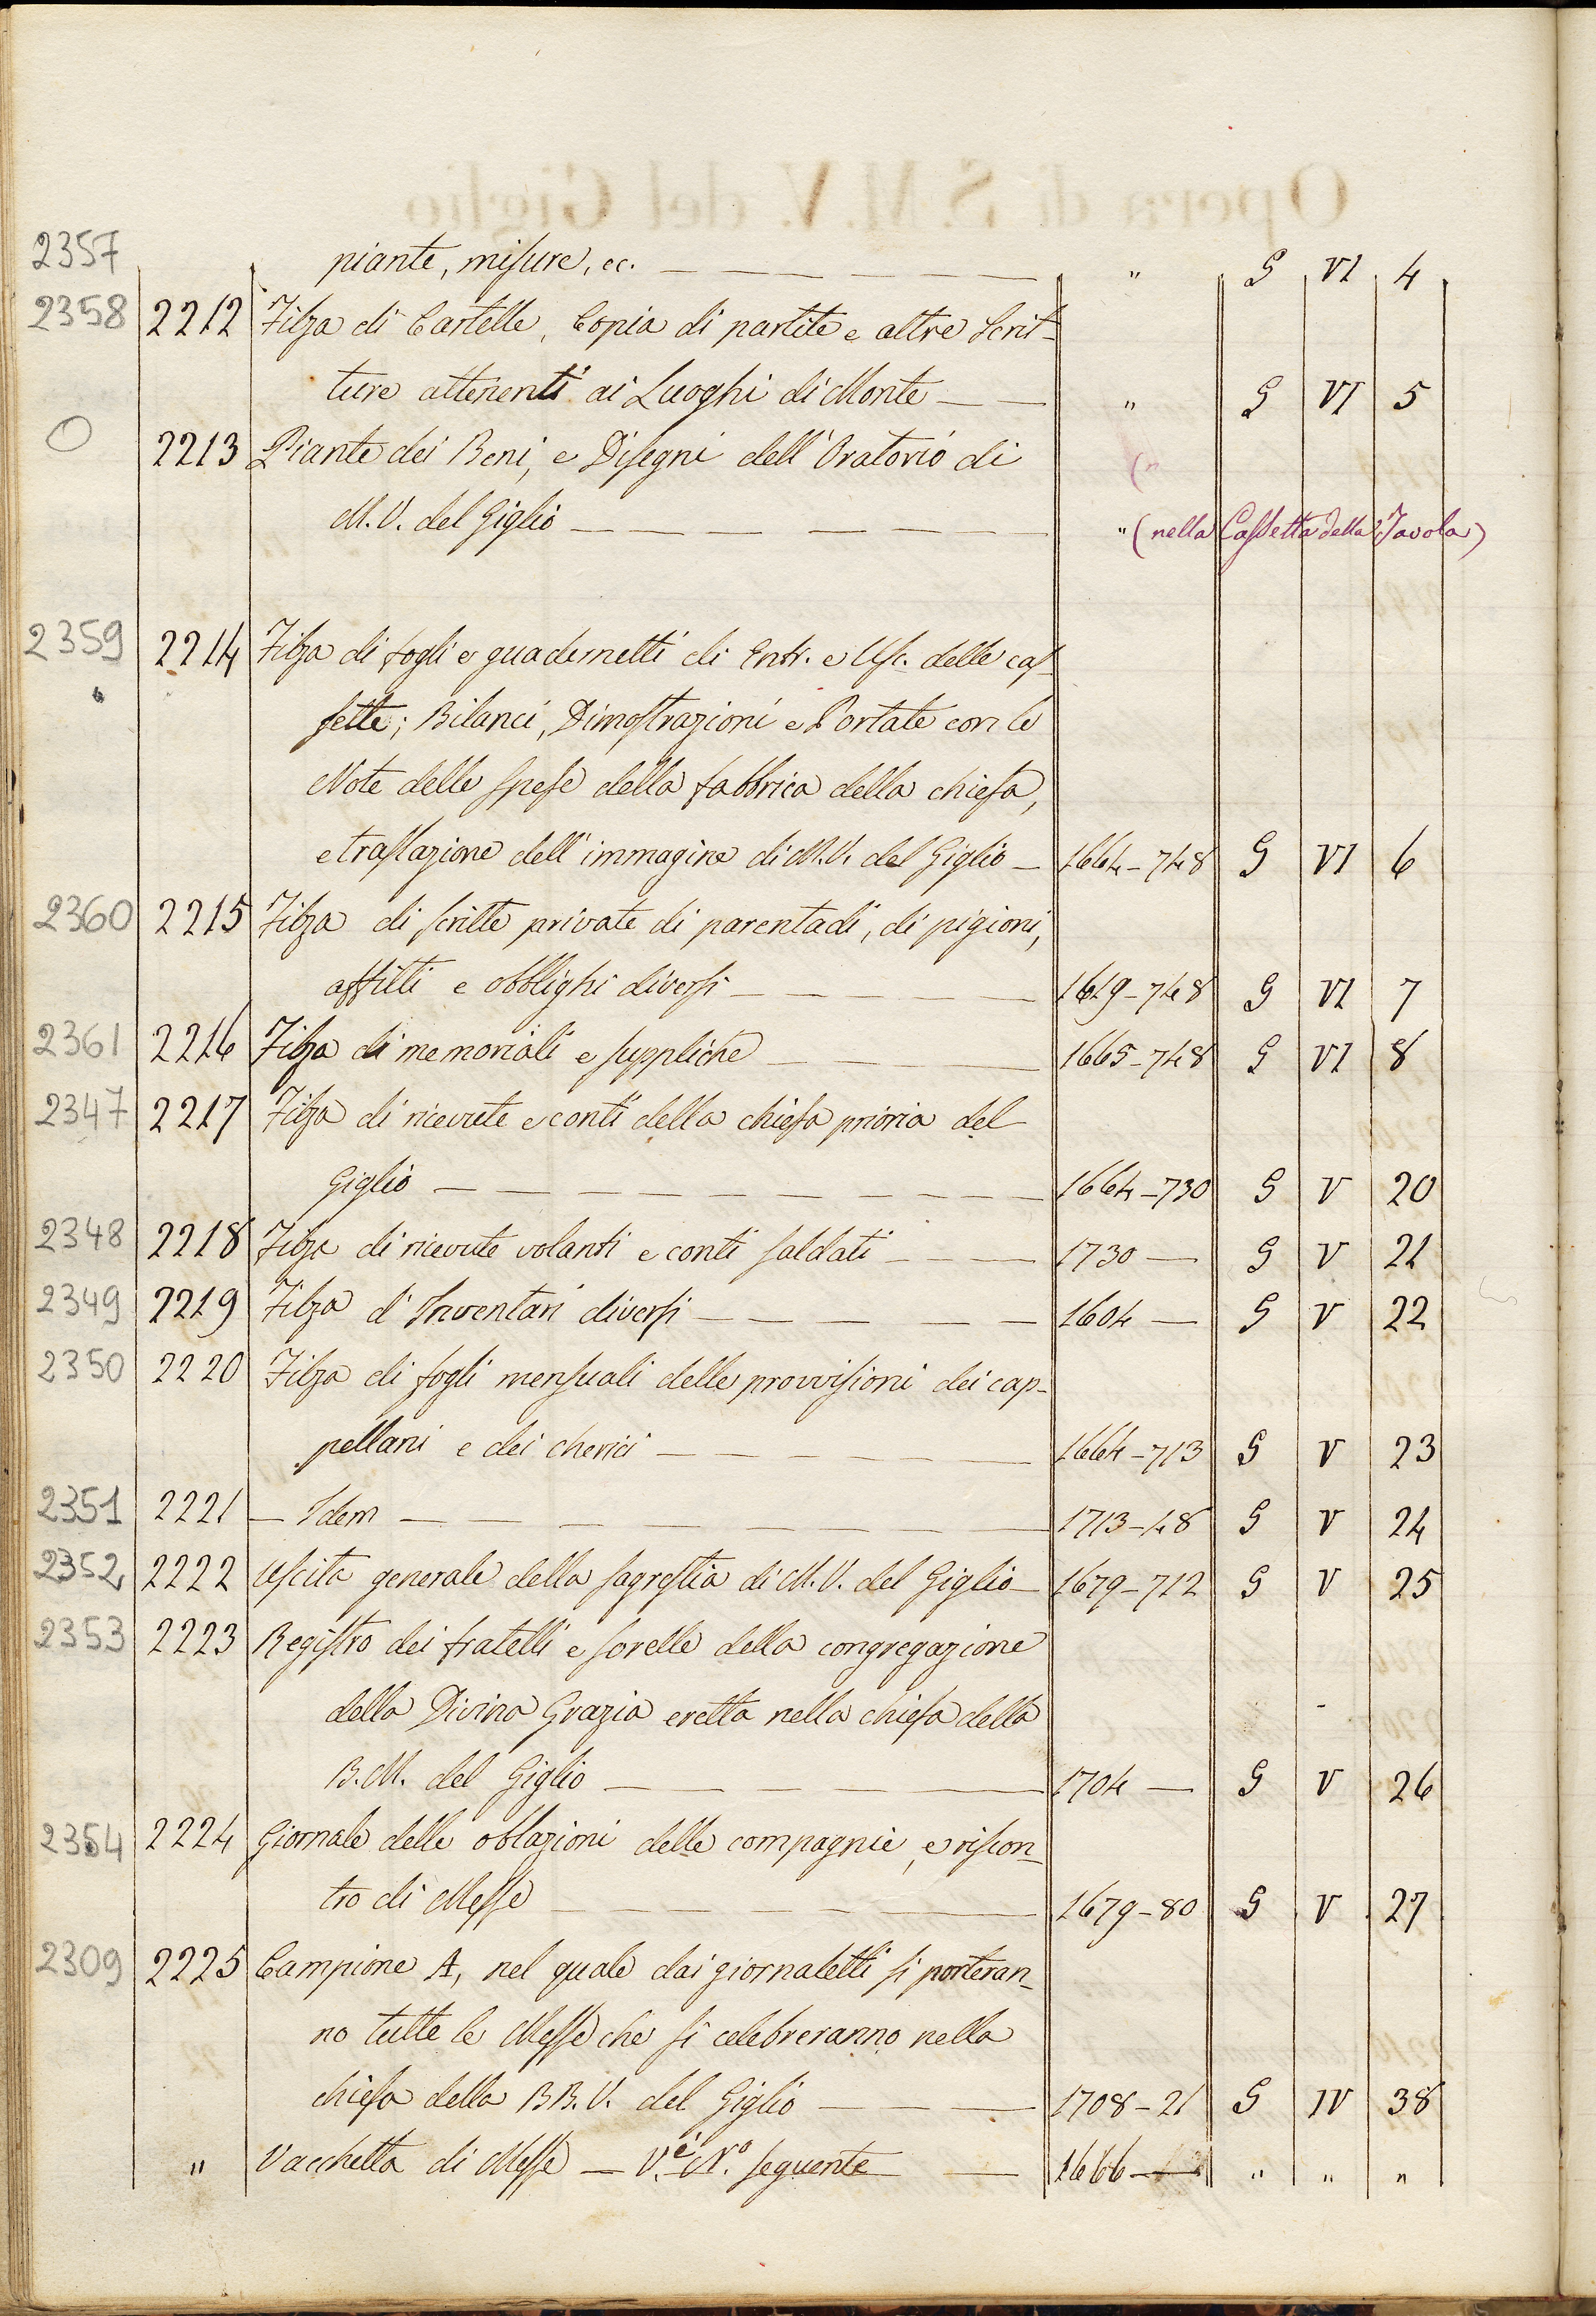 2357 piante, misure, ec. — — — — — — " G VI 4
2358 2212 Filza di Cartelle, Copia di partite e altre Scrit-
ture attenenti ai Luoghi di Monte — — " G VI 5
O 2213 Piante dei Beni, e Disegni dell'Oratorio di
M. V. del Giglio — — — — — " (nella Cassetta della Tavola)
2359 2214 Filza di fogli e quadernetti di Entr. e Usc. delle cas-
sette; Bilanci, Dimostrazioni e Portate con le
Note delle spese della fabbrica della chiesa,
e traslazione dell'immagine di M. V. del Giglio — 1664-748 G VI 6
2360 2215 Filza di scritte private di parentadi, di pigioni,
affitti e obblighi diversi — — — — — 1619-748 G VI 7
2361 2216 Filza di memoriali e suppliche — — — 1665-748 G VI 8
2347 2217 Filza di ricevute e conti della chiesa prioria del
Giglio — — — — — — — — — 1664-730 G V 20
2348 2218 Filza di ricevute volanti e conti saldati — — — 1730 — G V 21
2349 2219 Filza d'Inventari diversi — — — — — 1604 — G V 22
2350 2220 Filza di fogli mensuali delle provvisioni dei cap-
pellani e dei cherici — — — — — — 1664-713 G V 23
2351 2221 — Idem — — — — — — — — 1713-48 G V 24
2352 2222 Uscita generale della sagrestia di M. V. del Giglio — 1679-712 G V 25
2353 2223 Registro dei fratelli e sorelle della congregazione
della Divina Grazia eretta nella chiesa della
B. M. del Giglio — — — — — 1704 — G V 26
2354 2224 Giornale delle oblazioni delle compagnie, e riscon-
tro di Messe — — — — — — 1679-80 G V 27
2309 2225 Campione A, nel quale dai giornaletti si porteran-
no tutte le Messe che si celebreranno nella
chiesa della BB. V. del Giglio — — — 1708-21 G IV 38
" Vacchetta di Messe — V.é N.o seguente — 1666 — " " "